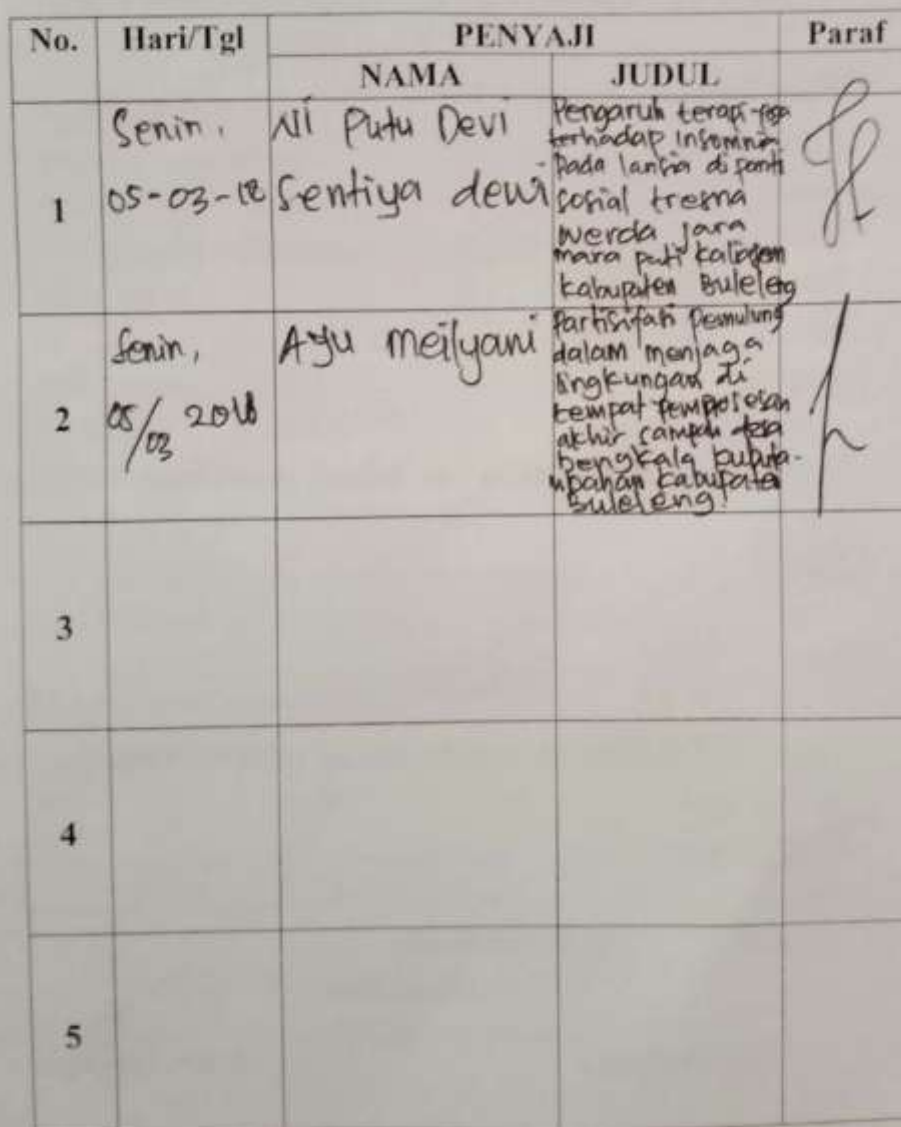 No. Hari/Tgl PENYAJI Paraf
NAMA JUDUL
1
Senin,
05-03-18
Ni Putu Devi
Sentiya dewi
Pengaruh terapi yoga
terhadap insomnia
pada lansia di panti
sosial tresna
werda jara
mara pati kaliasem
kabupaten Buleleng
2
Senin,
05/03 2018
Ayu Meilyani
Partisifasi Pemulung
dalam menjaga
lingkungan di
tempat pemprosesan
akhir sampah desa
bengkala
kabupaten
Buleleng.
3
4
5